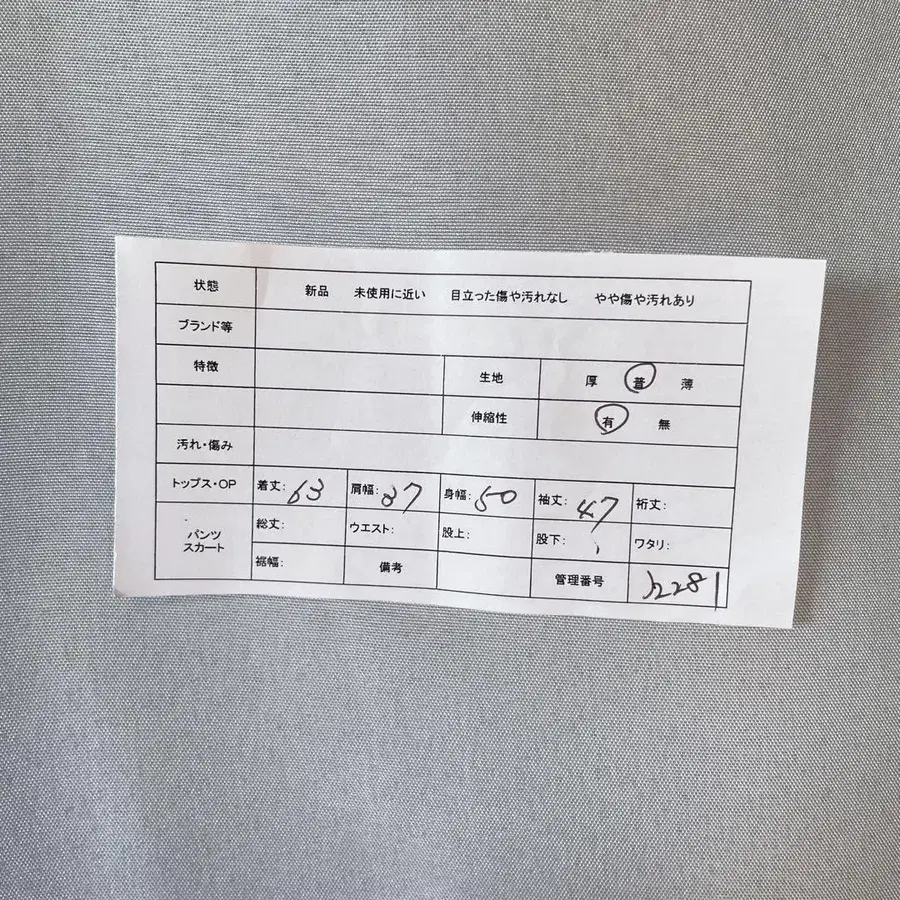 状態 新品 未使用に近い 目立った傷や汚れなし やや傷や汚れあり
ブランド等
特徴 生地 厚 普 薄
伸縮性 有 無
汚れ・傷み
トップス・OP 着丈: 63 肩幅: 37 身幅: 50 袖丈: 47 裄丈:
パンツ スカート 総丈: ウエスト: 股上: 股下: ワタリ:
裾幅: 備考 管理番号 h2281